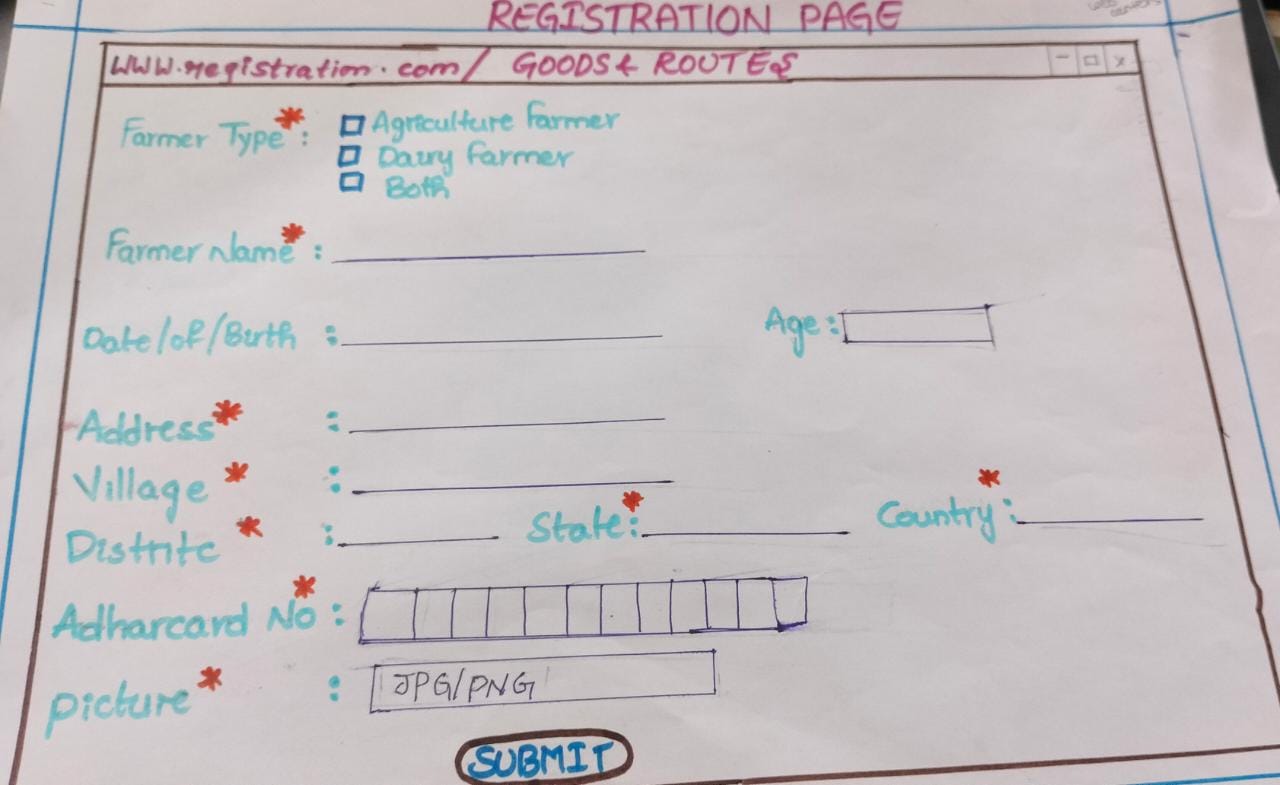 REGISTRATION PAGE
www.registration.com/ GOODS & ROUTES
- x
Farmer Type* : Agriculture Farmer
Dairy Farmer
Both
Farmer Name* :
Date/of/Birth : Age :
Address* :
Village* :
Distritc* : State:* Country:*
Adharcard No* :
picture* : JPG/PNG
SUBMIT